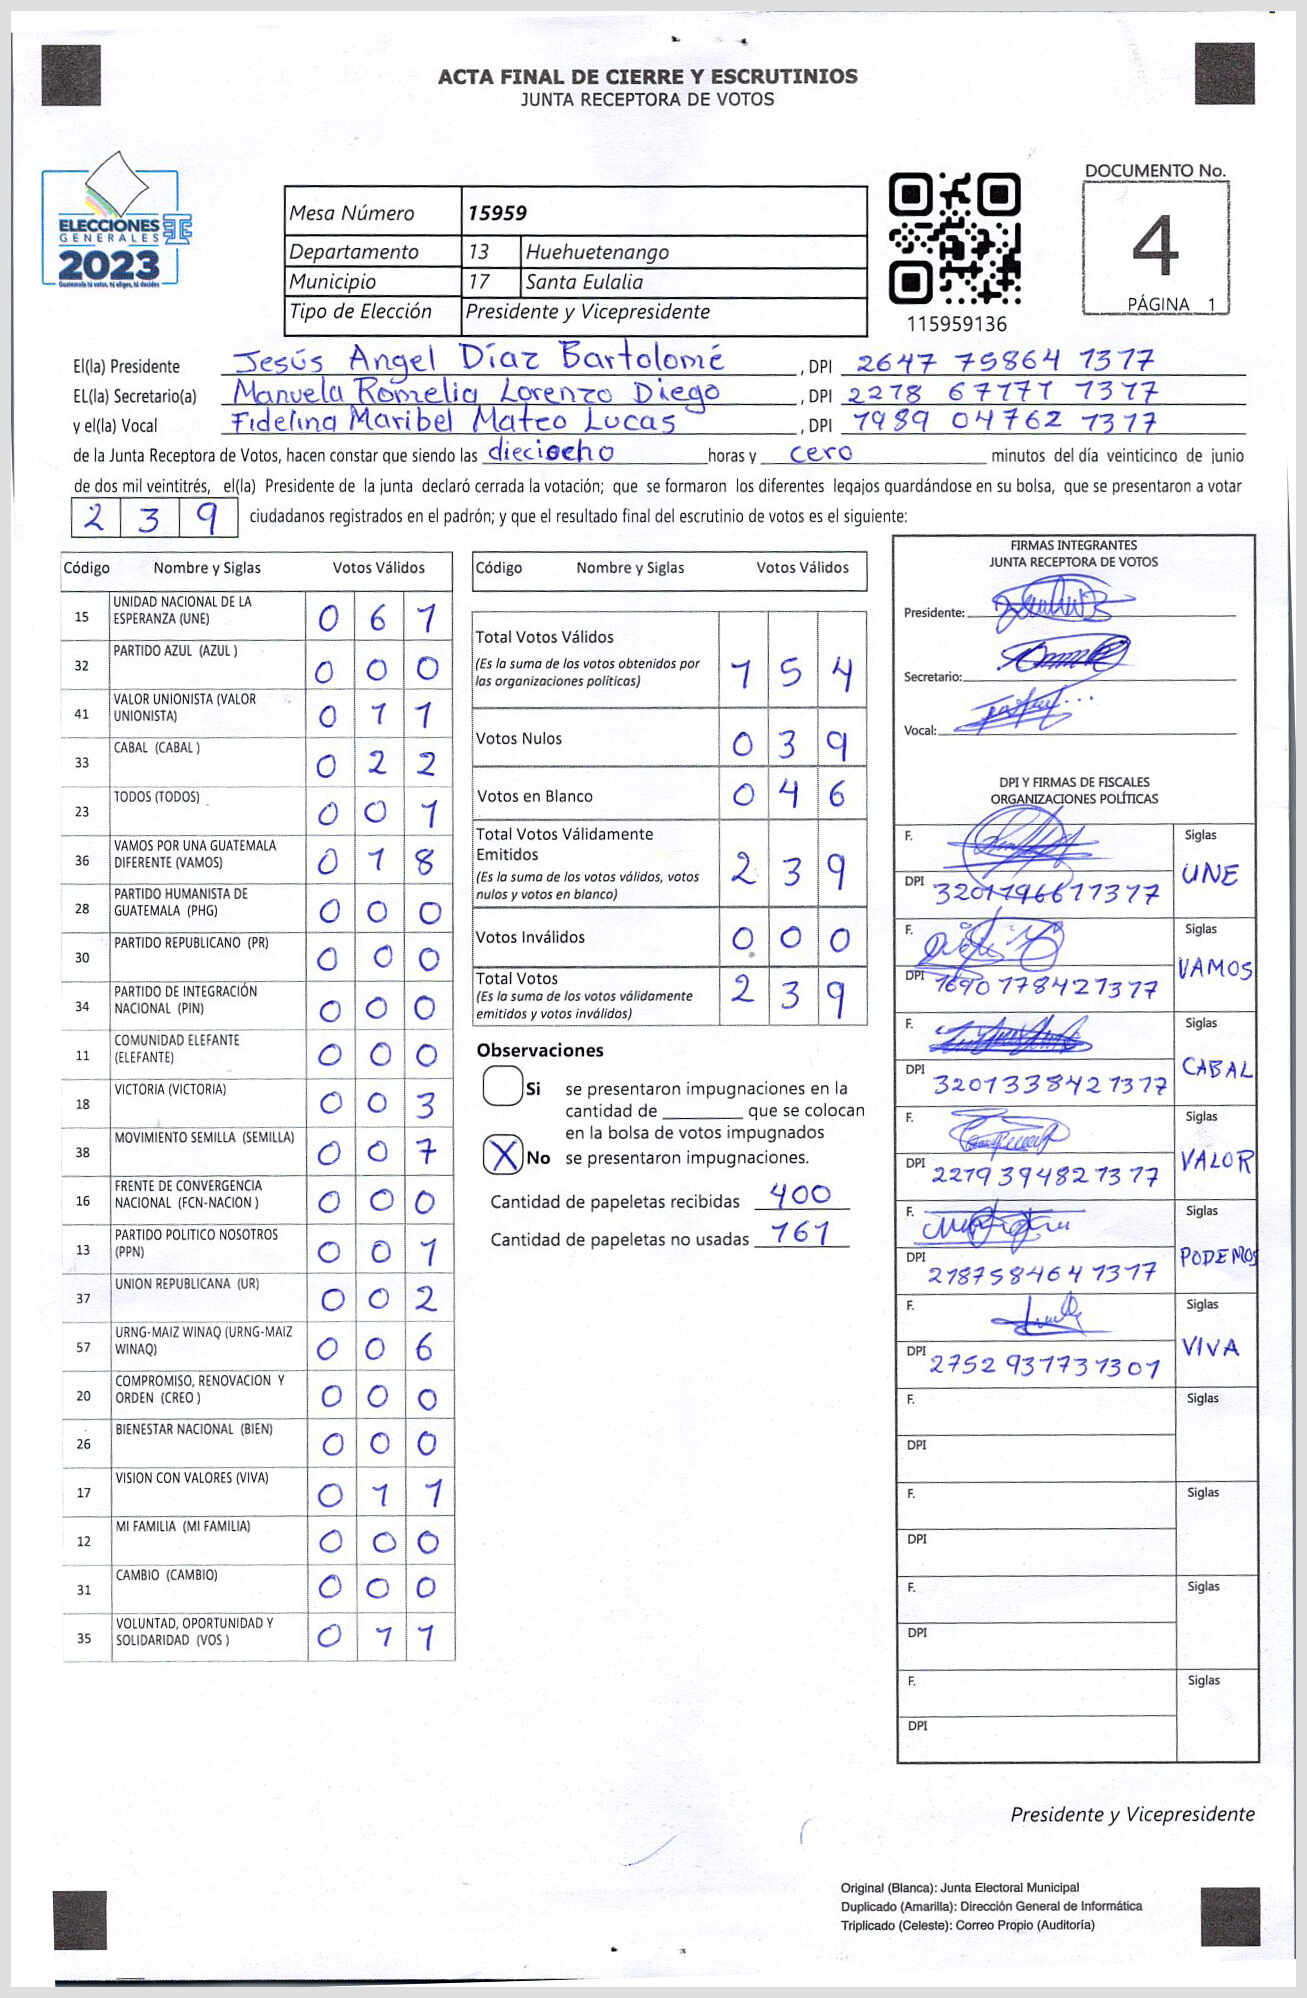 ACTA FINAL DE CIERRE Y ESCRUTINIOS
JUNTA RECEPTORA DE VOTOS
ELECCIONES
GENERALES
2023
Guatemala tú votas, tú eliges, tú decides
Mesa Número 15959
Departamento 13 Huehuetenango
Municipio 17 Santa Eulalia
Tipo de Elección Presidente y Vicepresidente
115959136
DOCUMENTO No.
4
PÁGINA 1
El(la) Presidente Jesús Angel Díaz Bartolomé, DPI 2647 75864 1317
EL(la) Secretario(a) Manuela Romelia Lorenzo Diego, DPI 2278 67171 1317
y el(la) Vocal Fidelina Maribel Mateo Lucas, DPI 1989 04762 1317
de la Junta Receptora de Votos, hacen constar que siendo las dieciocho horas y cero minutos del día veinticinco de junio
de dos mil veintitrés, el(la) Presidente de la junta declaró cerrada la votación; que se formaron los diferentes legajos guardándose en su bolsa, que se presentaron a votar
2 3 9 ciudadanos registrados en el padrón; y que el resultado final del escrutinio de votos es el siguiente:
Código Nombre y Siglas Votos Válidos
15 UNIDAD NACIONAL DE LA ESPERANZA (UNE) 0 6 1
32 PARTIDO AZUL (AZUL ) 0 0 0
41 VALOR UNIONISTA (VALOR UNIONISTA) 0 1 1
33 CABAL (CABAL ) 0 2 2
23 TODOS (TODOS) 0 0 1
36 VAMOS POR UNA GUATEMALA DIFERENTE (VAMOS) 0 1 8
28 PARTIDO HUMANISTA DE GUATEMALA (PHG) 0 0 0
30 PARTIDO REPUBLICANO (PR) 0 0 0
34 PARTIDO DE INTEGRACIÓN NACIONAL (PIN) 0 0 0
11 COMUNIDAD ELEFANTE (ELEFANTE) 0 0 0
18 VICTORIA (VICTORIA) 0 0 3
38 MOVIMIENTO SEMILLA (SEMILLA) 0 0 7
16 FRENTE DE CONVERGENCIA NACIONAL (FCN-NACION ) 0 0 0
13 PARTIDO POLITICO NOSOTROS (PPN) 0 0 1
37 UNION REPUBLICANA (UR) 0 0 2
57 URNG-MAIZ WINAQ (URNG-MAIZ WINAQ) 0 0 6
20 COMPROMISO, RENOVACION Y ORDEN (CREO ) 0 0 0
26 BIENESTAR NACIONAL (BIEN) 0 0 0
17 VISION CON VALORES (VIVA) 0 1 1
12 MI FAMILIA (MI FAMILIA) 0 0 0
31 CAMBIO (CAMBIO) 0 0 0
35 VOLUNTAD, OPORTUNIDAD Y SOLIDARIDAD (VOS ) 0 1 1
Código Nombre y Siglas Votos Válidos
Total Votos Válidos 1 5 4
(Es la suma de los votos obtenidos por
las organizaciones políticas)
Votos Nulos 0 3 9
Votos en Blanco 0 4 6
Total Votos Válidamente
Emitidos 2 3 9
(Es la suma de los votos válidos, votos
nulos y votos en blanco)
Votos Inválidos 0 0 0
Total Votos 2 3 9
(Es la suma de los votos válidamente
emitidos y votos inválidos)
Observaciones
Si se presentaron impugnaciones en la
cantidad de ________ que se colocan
en la bolsa de votos impugnados
X No se presentaron impugnaciones.
Cantidad de papeletas recibidas 400
Cantidad de papeletas no usadas 161
FIRMAS INTEGRANTES
JUNTA RECEPTORA DE VOTOS
Presidente:
Secretario:
Vocal:
DPI Y FIRMAS DE FISCALES
ORGANIZACIONES POLÍTICAS
F. Siglas
DPI 3201196611317 UNE
F. Siglas
DPI 1690178421317 VAMOS
F. Siglas
DPI 3201338421317 CABAL
F. Siglas
DPI 2219394821317 VALOR
F. Siglas
DPI 2187584641317 PODEMOS
F. Siglas
DPI 2752931731301 VIVA
F. Siglas
DPI
F. Siglas
DPI
F. Siglas
DPI
F. Siglas
DPI
Presidente y Vicepresidente
Original (Blanca): Junta Electoral Municipal
Duplicado (Amarilla): Dirección General de Informática
Triplicado (Celeste): Correo Propio (Auditoría)